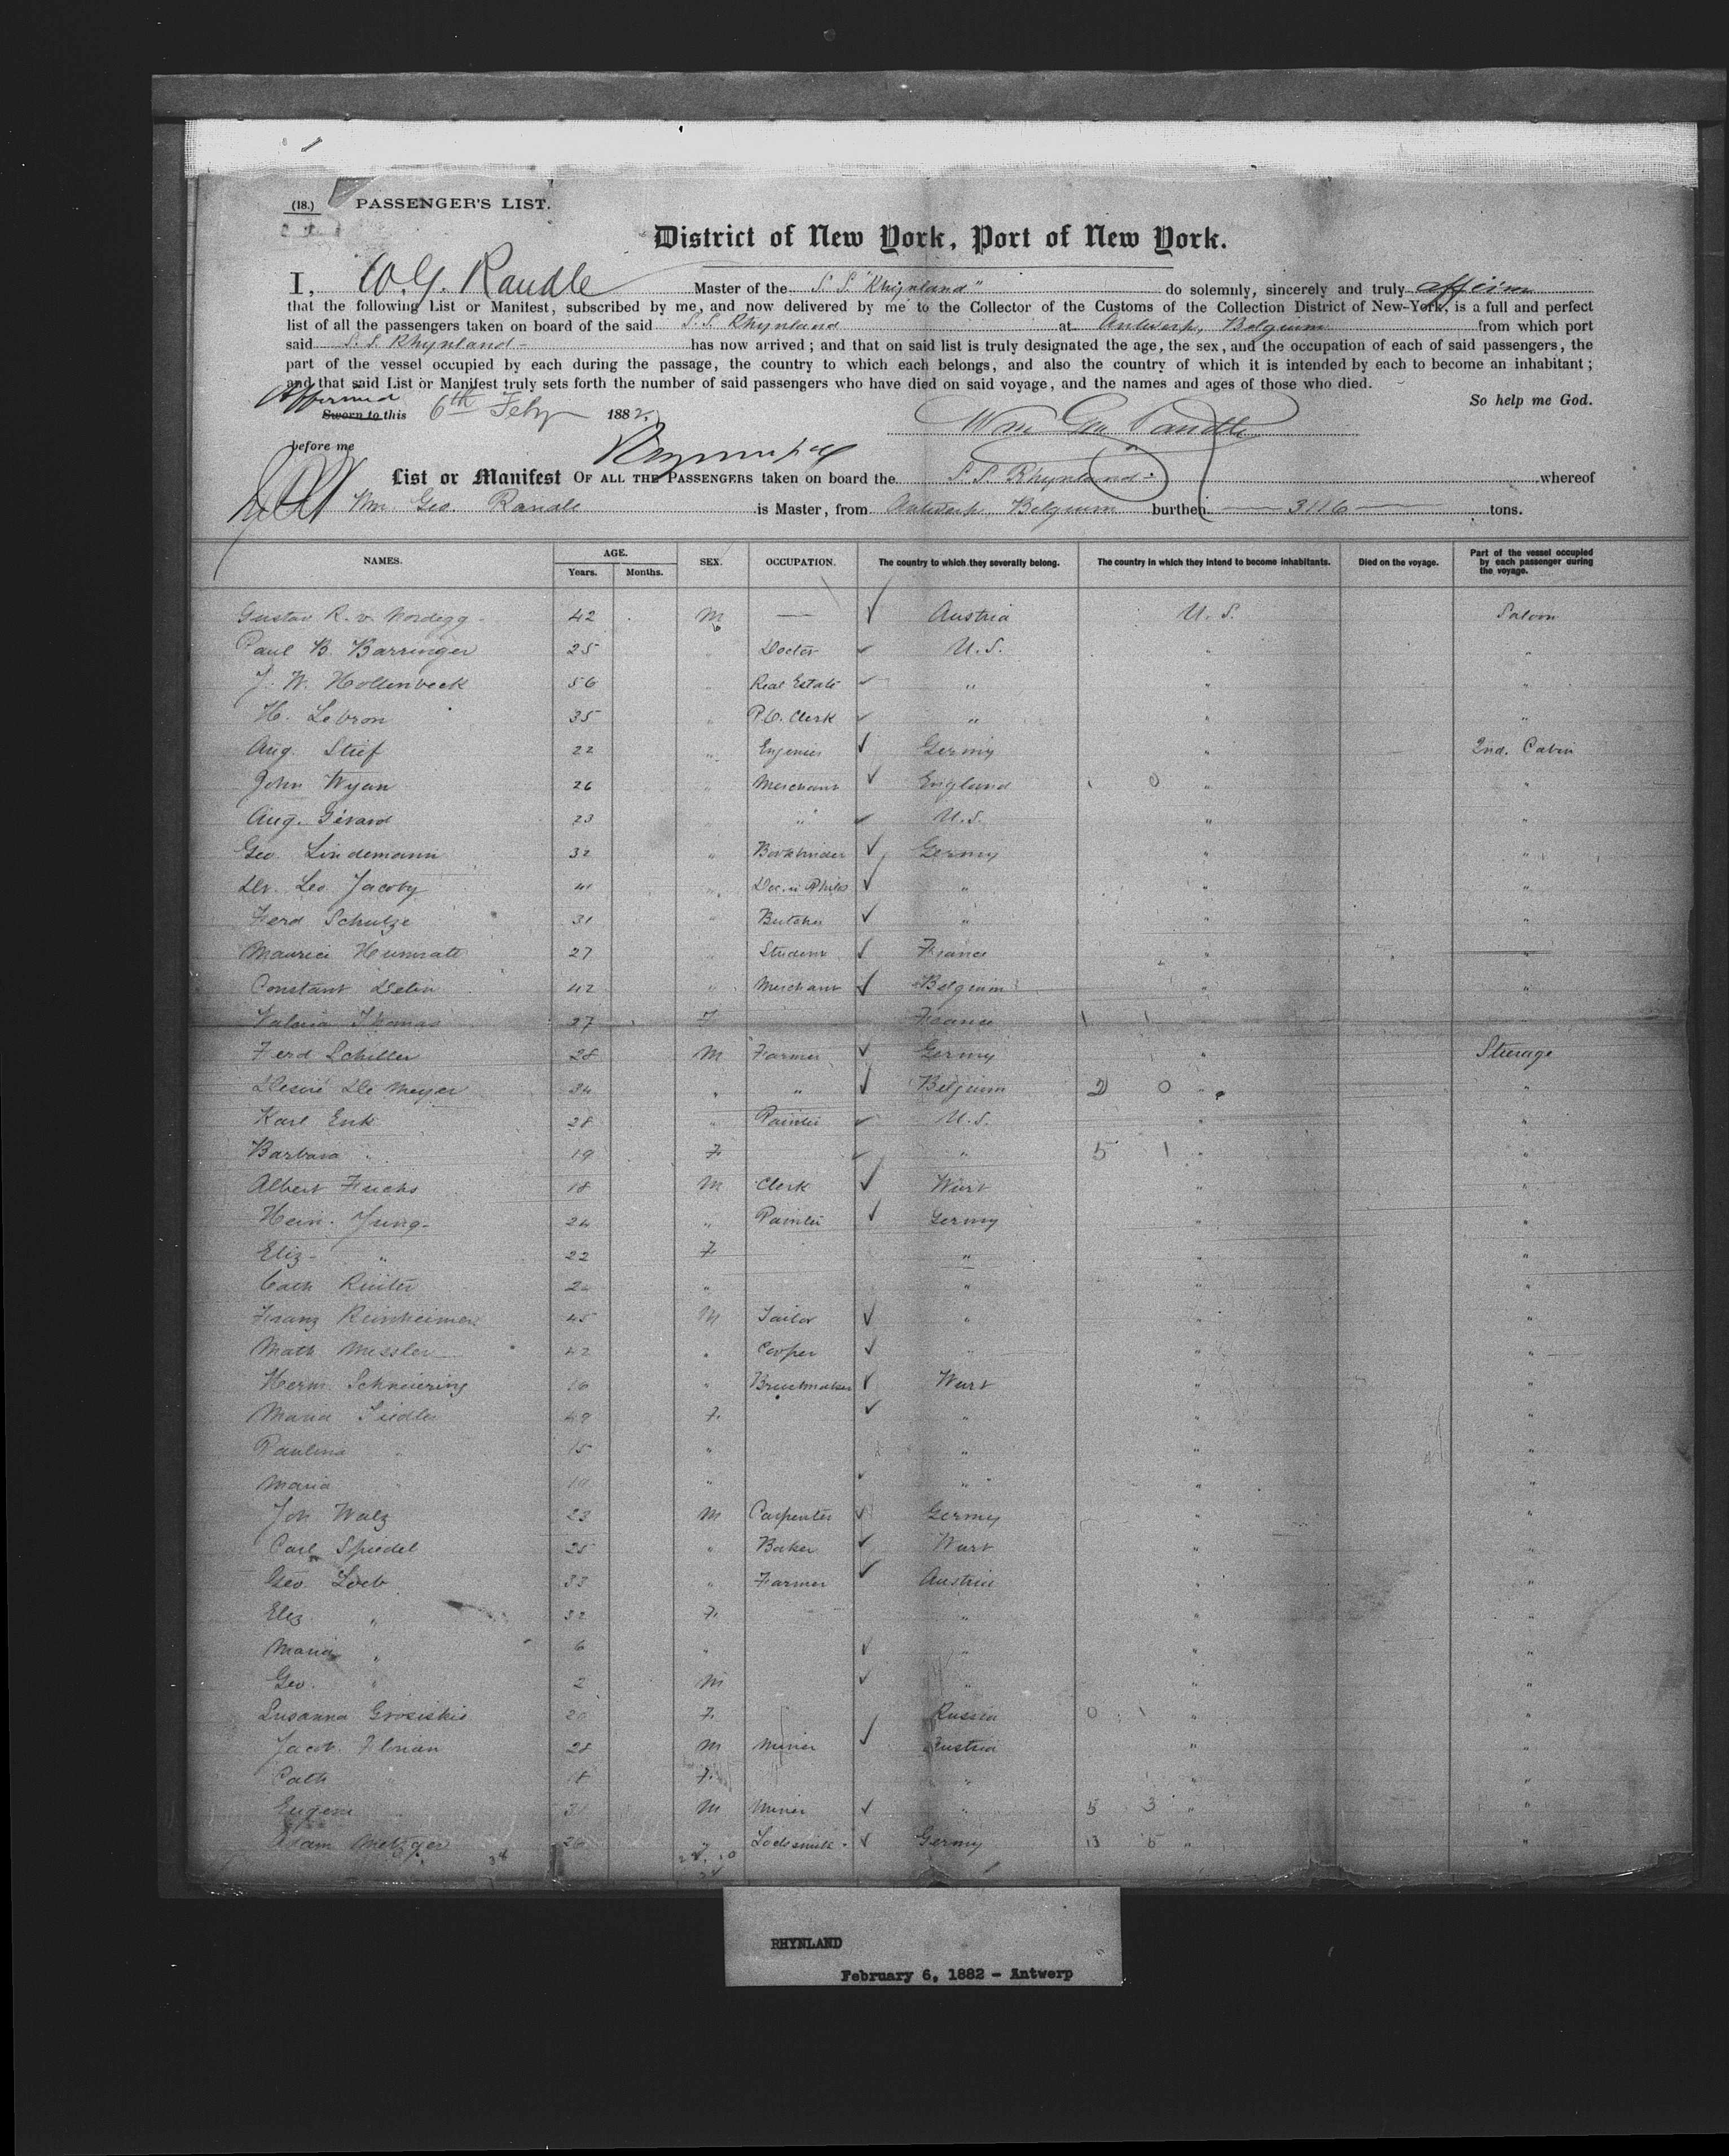 (18.) PASSENGER'S LIST.
District of New York, Port of New York.
I, W. G. Randle Master of the S. S. "Rhynland" do solemnly, sincerely and truly affirm
that the following List or Manifest, subscribed by me, and now delivered by me to the Collector of the Customs of the Collection District of New-York, is a full and perfect
list of all the passengers taken on board of the said S. S. Rhynland at Antwerp, Belgium from which port
said S. S. Rhynland has now arrived; and that on said list is truly designated the age, the sex, and the occupation of each of said passengers, the
part of the vessel occupied by each during the passage, the country to which each belongs, and also the country of which it is intended by each to become an inhabitant;
and that said List or Manifest truly sets forth the number of said passengers who have died on said voyage, and the names and ages of those who died.
So help me God.
Affirmed
Sworn to this 6th Feby 1882.
Wm Geo Randle
before me
List or Manifest OF ALL THE PASSENGERS taken on board the S. S. Rhynland whereof
Wm. Geo. Randle is Master, from Antwerp, Belgium burthen 3116 tons.
NAMES. AGE. Years. Months. SEX. OCCUPATION. The country to which they severally belong. The country in which they intend to become inhabitants. Died on the voyage. Part of the vessel occupied by each passenger during the voyage.
Gustav R. v. Nordegg 42 M — Austria U. S. Saloon
Paul B. Barringer 25 " Doctor U.S. " "
J. W. Hollenbeck 56 " Real Estate " " "
H. Lebron 35 " P.O. Clerk " " "
Aug. Stief 22 " Engineer Germy " 2nd. Cabin
John Wyan 26 " Merchant England " "
Aug. Gérard 23 " U.S. " "
Geo. Lindemann 32 " Bookbinder Germy " "
Dr. Leo. Jacoby 41 " " " "
Ferd Schulze 31 " Butcher " " "
Maurice 27 " Student France " "
Constant Delin 42 " Merchant Belgium " "
Valeria Thomas 27 F France
Ferd Schiller 28 M Farmer Germy " Steerage
Desiré De Meyer 34 " " Belgium 2 0 " "
Karl Enk 28 " Painter U.S. " "
Barbara " 19 F " 5 1 " "
Albert Fuchs 18 M Clerk Wurt " "
Hein. Jung 24 " Painter Germy " "
Eliz " 22 F " " "
Cath Reuter " " " "
Franz Reinheimer 45 M Tailor " " "
Math Messler 42 " Cooper " " "
Herm. Schneiering 16 " Wurt " "
Maria Siedler 49 F. " " "
Paulina " 15 " " " "
Maria " " " "
Joh Walz 23 M Carpenter Germy " "
Carl Speidel 25 " Baker Wurt " "
Geo. Loeb 33 " Farmer Austria " "
Eliz " 32 F. " " "
Maria " 6 " " " "
Geo. " 2 M " " "
Susanna Grosiskie 20 F. Russia 0 1 " "
Jacob Florian 28 M Miner Austria " "
Cath " 18 F. " " "
Eugene 31 M Miner " 5 3 " "
Adam Metzger 26 " Locksmith Germy 13 5 " "
RHYNLAND
February 6, 1882 - Antwerp